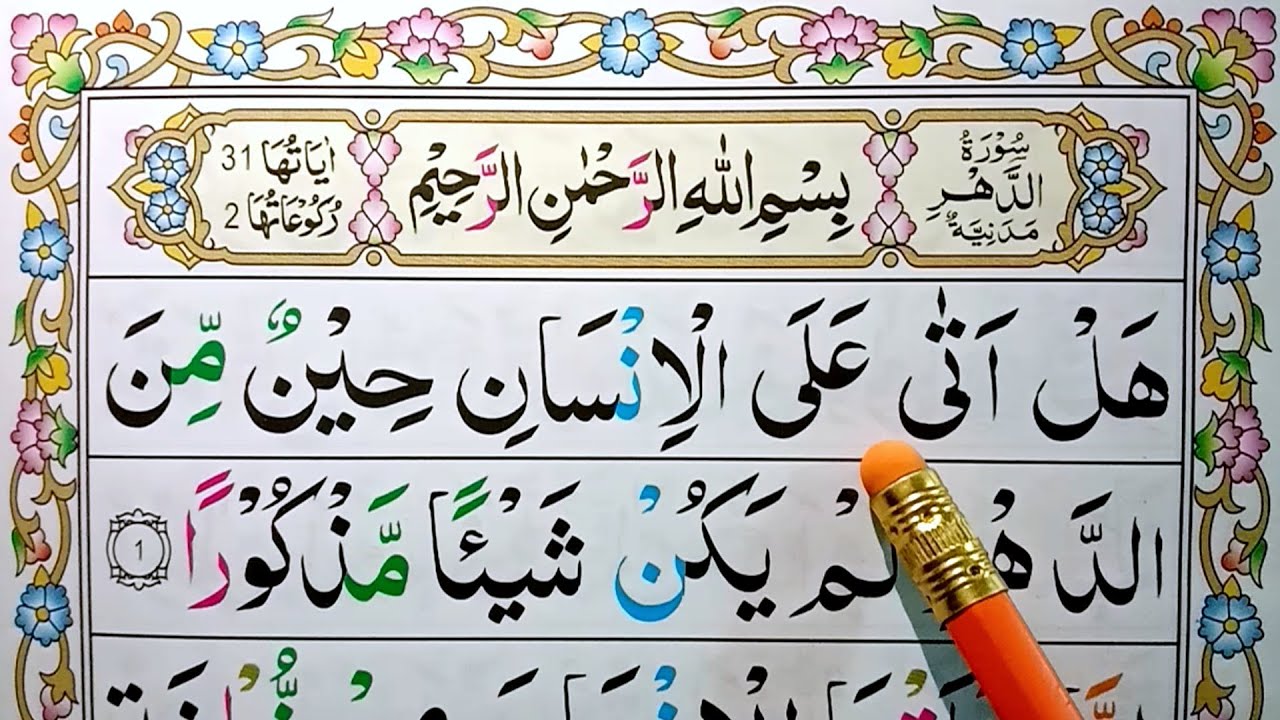 سُوْرَةُ الدَّهْرِ مَدَنِيَّةٌ
بِسْمِ اللّٰهِ الرَّحْمٰنِ الرَّحِيْمِ
اٰيَاتُهَا 31
رُكُوْعَاتُهَا 2
هَلْ اَتٰى عَلَى الْاِنْسَانِ حِيْنٌ مِّنَ
الدَّهْرِ لَمْ يَكُنْ شَيْئًا مَّذْكُوْرًا 1